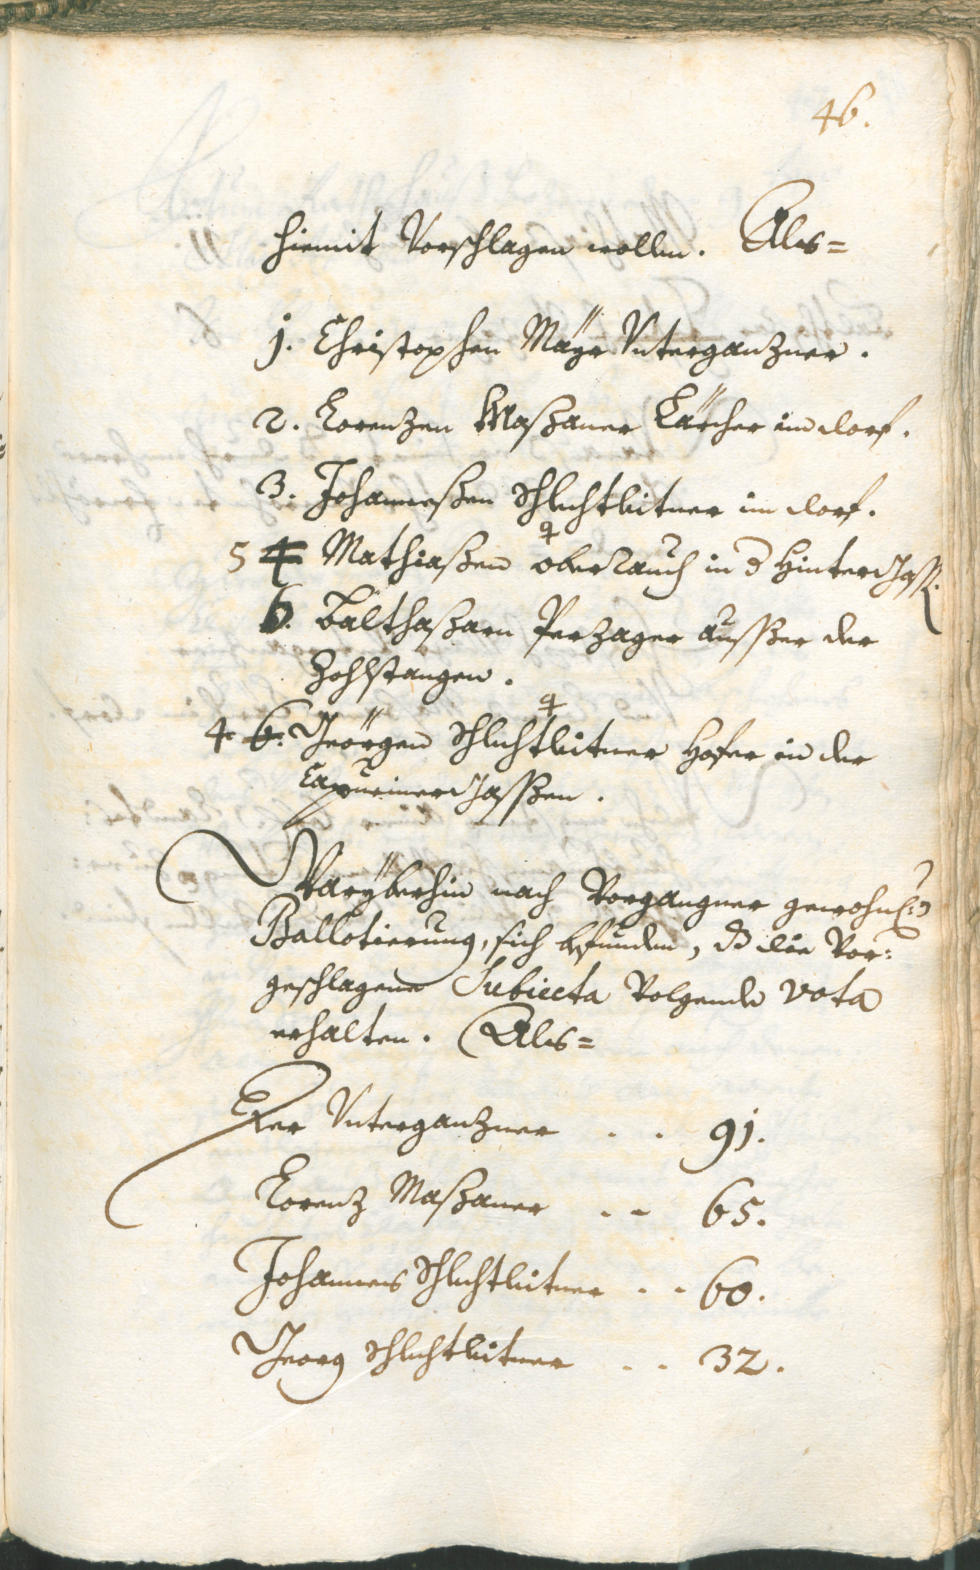 46.
hiemit Vorschlagen wollen. Als=
1. Christophen Mäÿr Unterganzner.
2. Lorenzen Maßaner Lärcher im dorf.
3. Johanneßen Schlichtleitner im dorf.
5 4 Mathiaßen oberrauch in d Hinter Gass.
6. Balthaßarn Perzager ausser der
Zohlstangen.
4. 6. Geörgen Schlichtleitner Hofer in der
Capuciner Gassen.
Warÿberhin nach Vorgangner gewohnl:n
Ballotierung, sich befunden, dß die Vor:
geschlagene Subiecta Volgende Vota
erhalten. Als=
Der Unterganzner . . 91.
Lorenz Maßaner . . 65.
Johannes Schlichtleitner . . 60.
Georg Schlichtleitner . . 32.